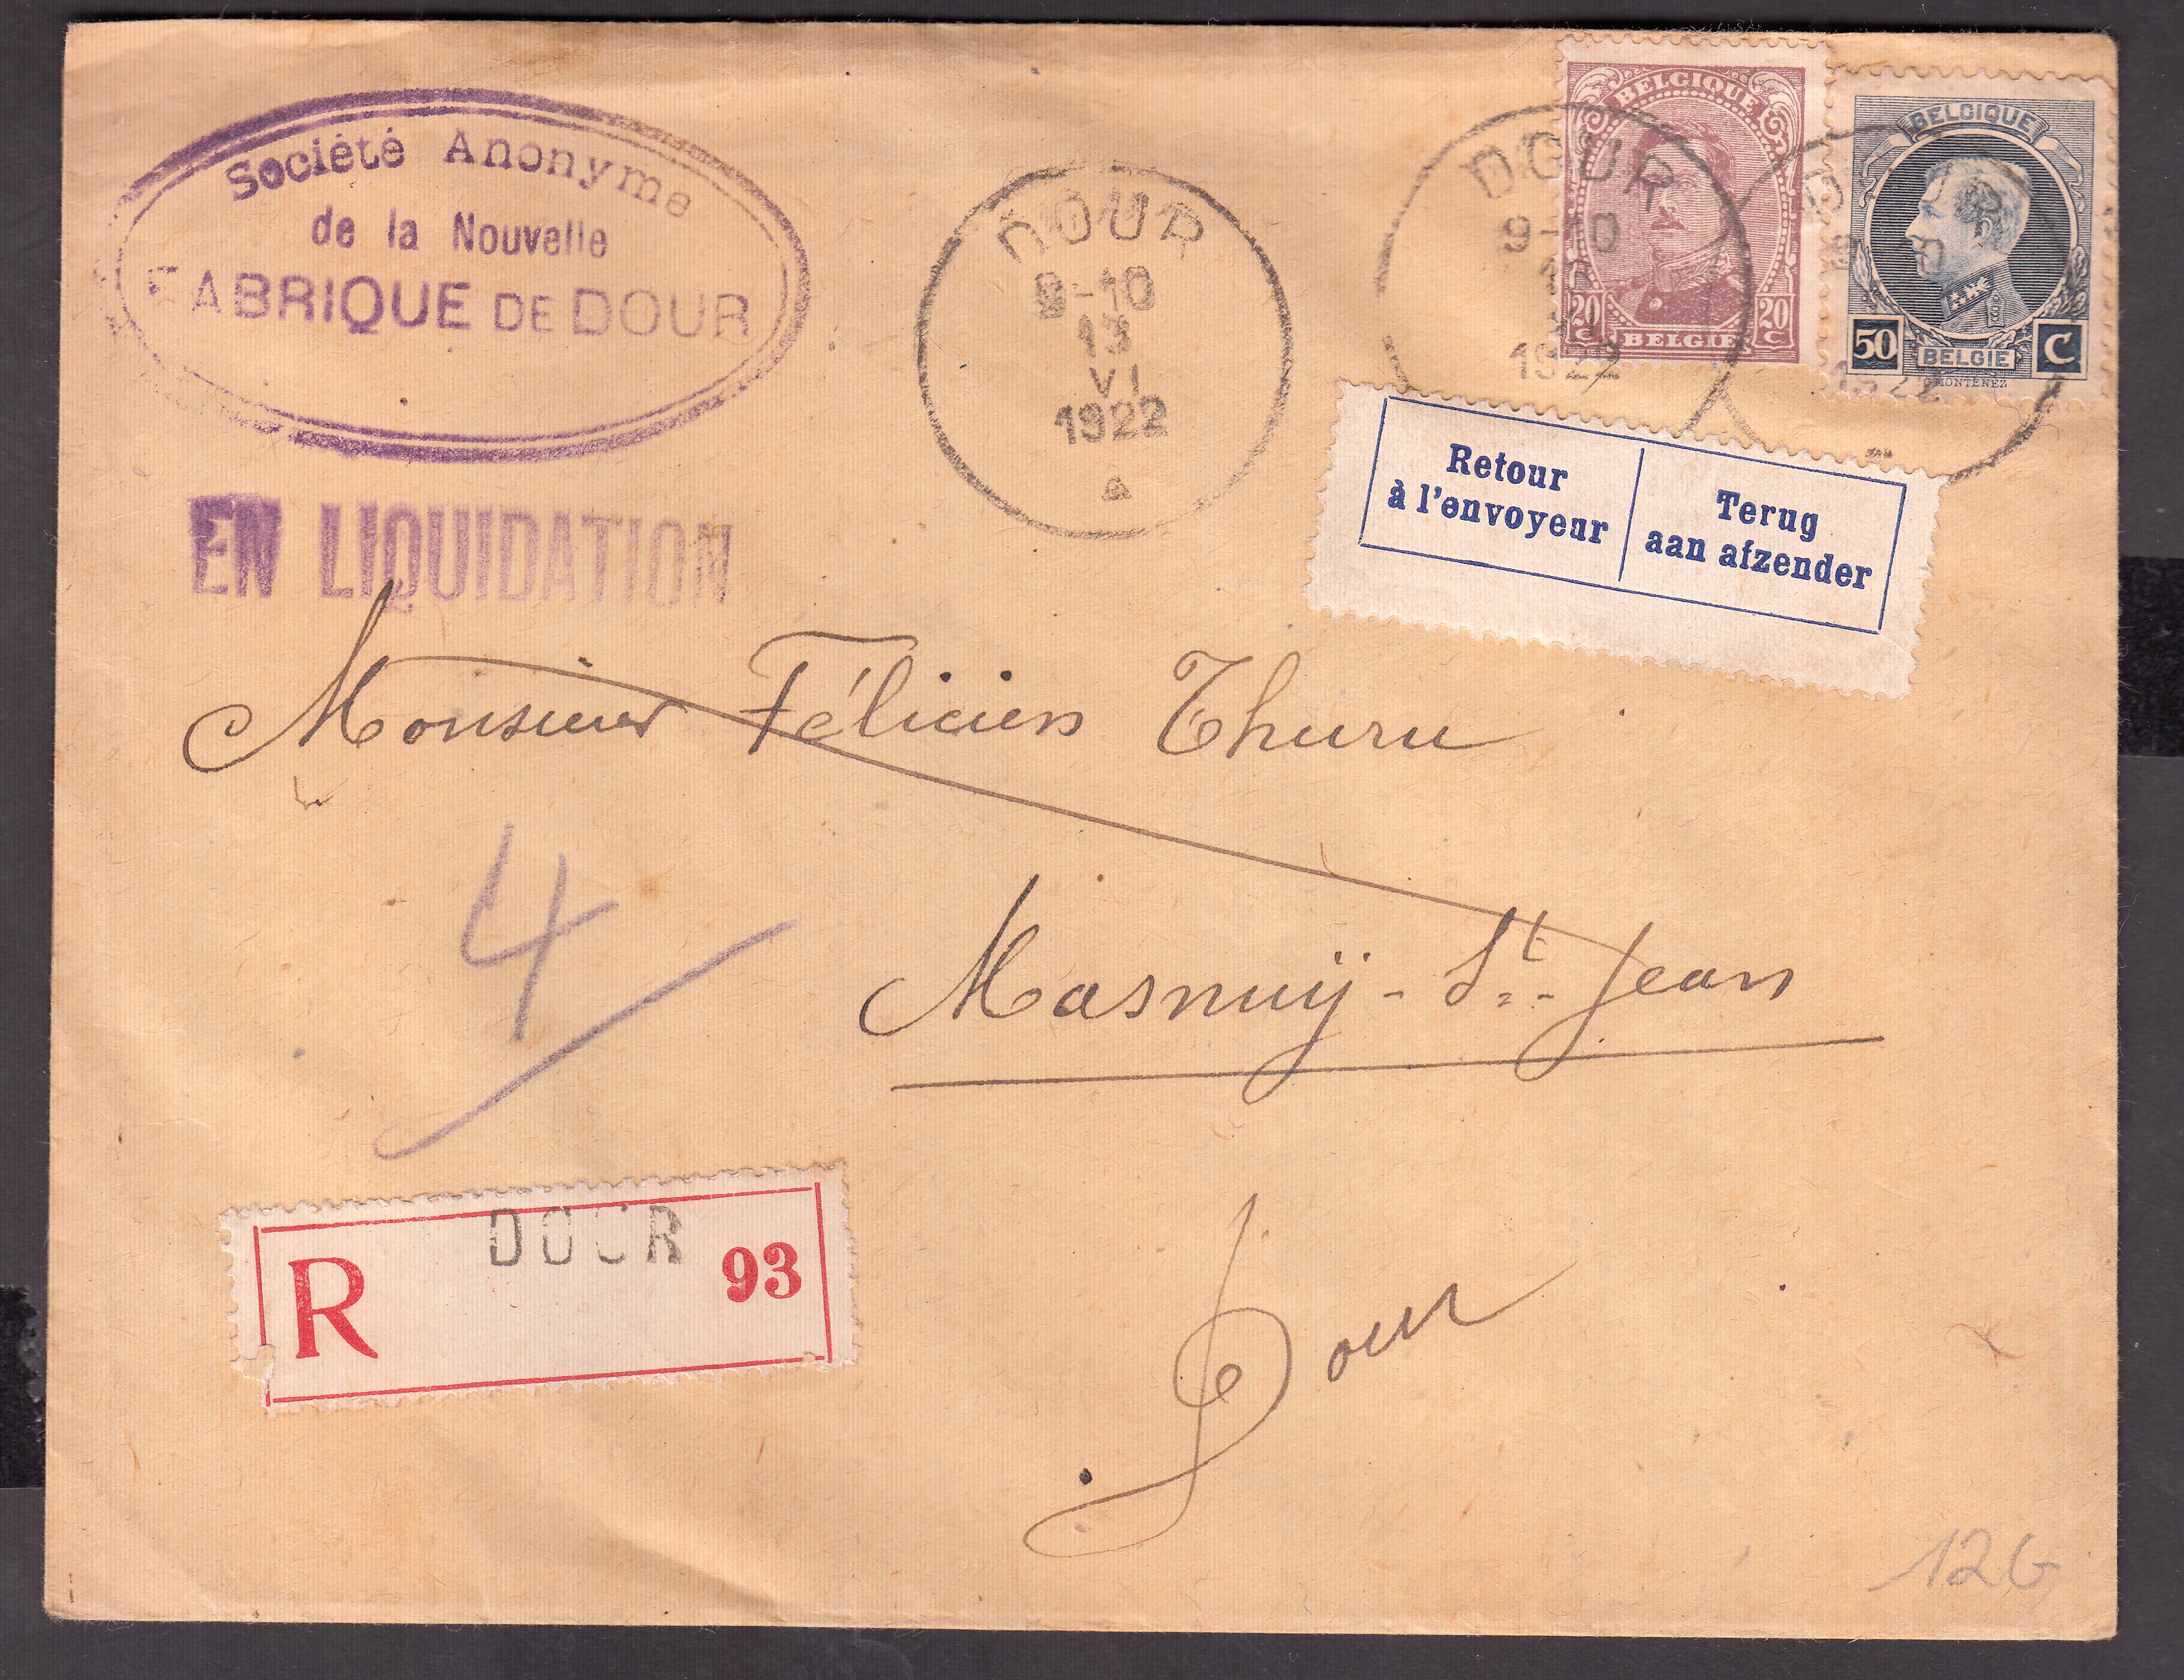 Société Anonyme
de la Nouvelle
FABRIQUE DE DOUR
EN LIQUIDATION
DOUR
9-10
13
VI
1922
a
DOUR
9-10
13
VI
1922
BELGIQUE
20 C
20 C
BELGIE
BELGIQUE
50
C
BELGIE
G MONTENEZ
1922
Retour
à l'envoyeur
Terug
aan afzender
Monsieur Félicien Thuru
4
Masnuÿ-St-Jean
DOUR
R
93
Dour
12G